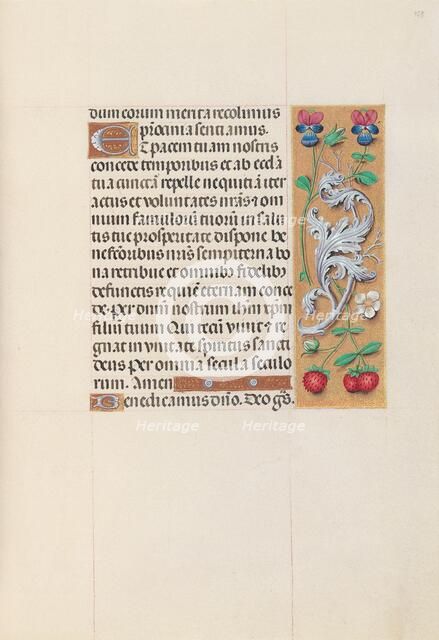 158
dum eorum merita recolimus
patrocinia sentiamus.
Et pacem tuam nostris
concede temporibus et ab eccl̄a
tua cunctā repelle nequitiā iter
actus et voluntates nr̄as ⁊ om
nium famulorū tuorū in salu
tis tue prosperitate dispone be
nefactoribus nr̄is sempiterna bo
na retribue et omnibꝰ fidelibꝰ
defunctis requiē eternam conce
de. Per dnm nostrum ihm xpm
filiū tuum Qui tecū viuit ⁊ re
gnat in vnitate spiritus sancti
deus per omnia secula seculo
rum. Amen
Benedicamus dn̄o. Deo grās.
Heritage
Heritage
Heritage
Heritage
Heritage
Heritage